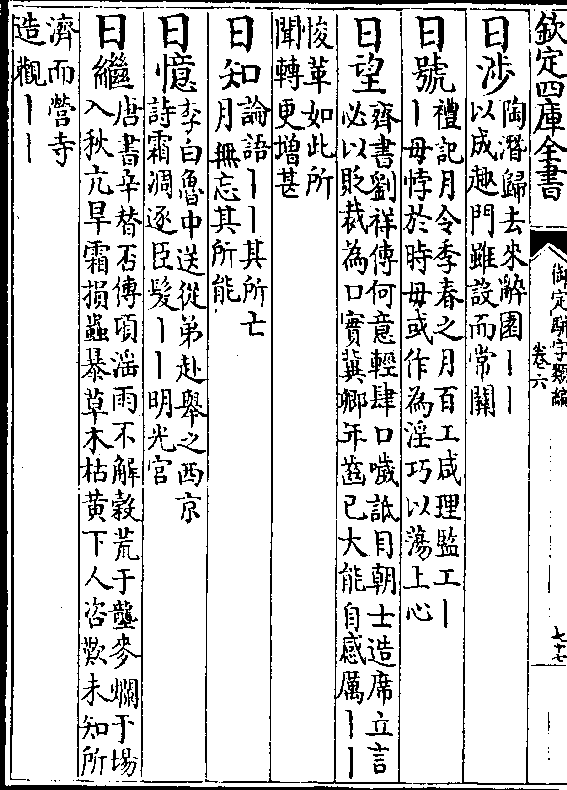 欽定四庫全書
御定駢字類編
卷六
七十七
日涉
陶潛歸去來辭園丨丨
以成趣門雖設而常關
日號
禮記月令季春之月百工咸理監工丨
丨毋悖於時毋或作為淫巧以蕩上心
日望
齊書劉祥傳何意輕肆口噦詆目朝士造席立言
必以貶裁為口實冀卿年齒已大能自感厲丨丨
悛革如此所
聞轉更增甚
日知
論語丨丨其所亡
月無忘其所能
日憶
李白魯中送從弟赴舉之西京
詩霜凋逐臣髮丨丨明光宮
日繼
唐書辛替否傳頃淫雨不解穀荒于壟麥爛于場
入秋亢旱霜損蟲暴草木枯黄下人咨歎未知所
濟而營寺
造觀丨丨